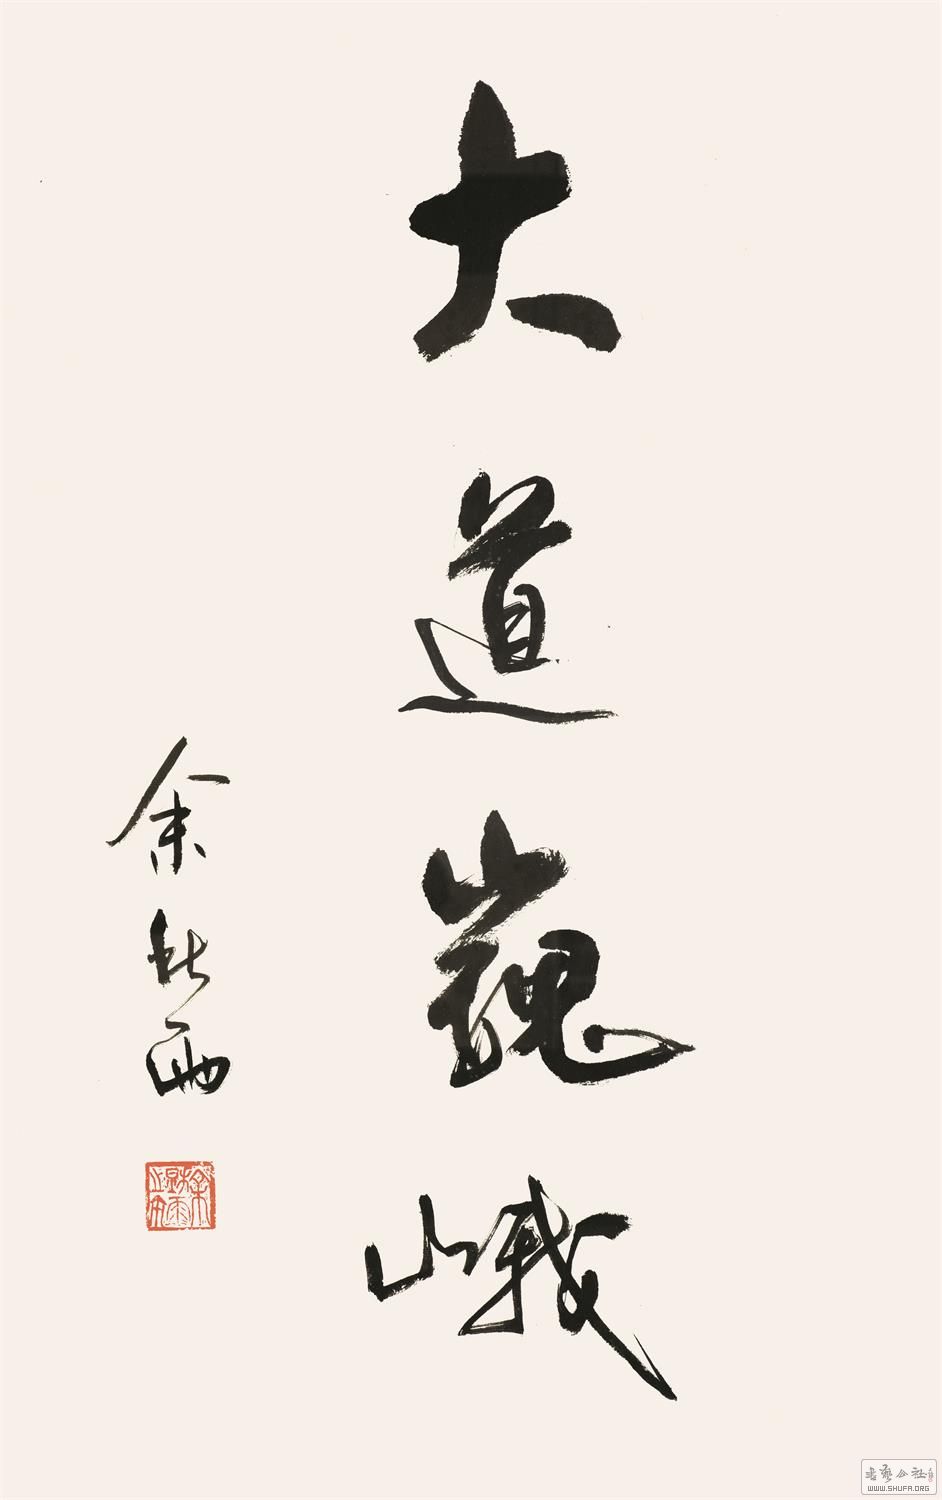 大道巍峨
余秋雨
余秋雨之印
書藝公社
WWW.SHUFA.ORG